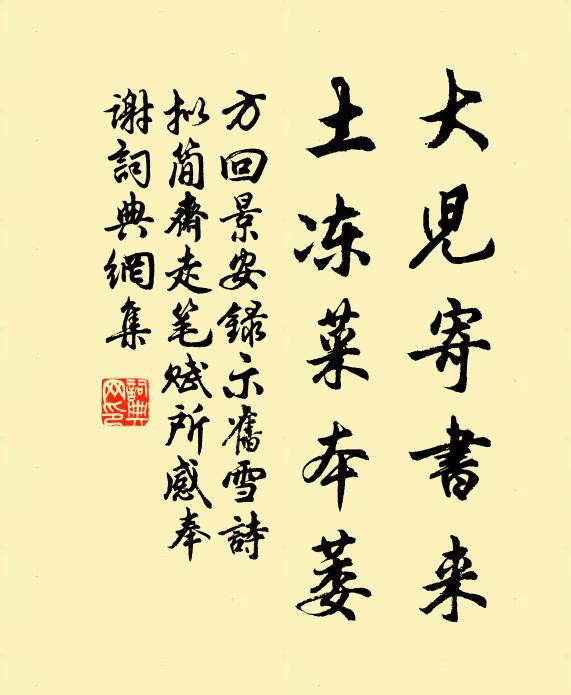 大児寄書来
土冻菜本萎
方回景安録示舊雪詩
拟简齋走笔赋所感奉
谢詞典網集
詞典网印